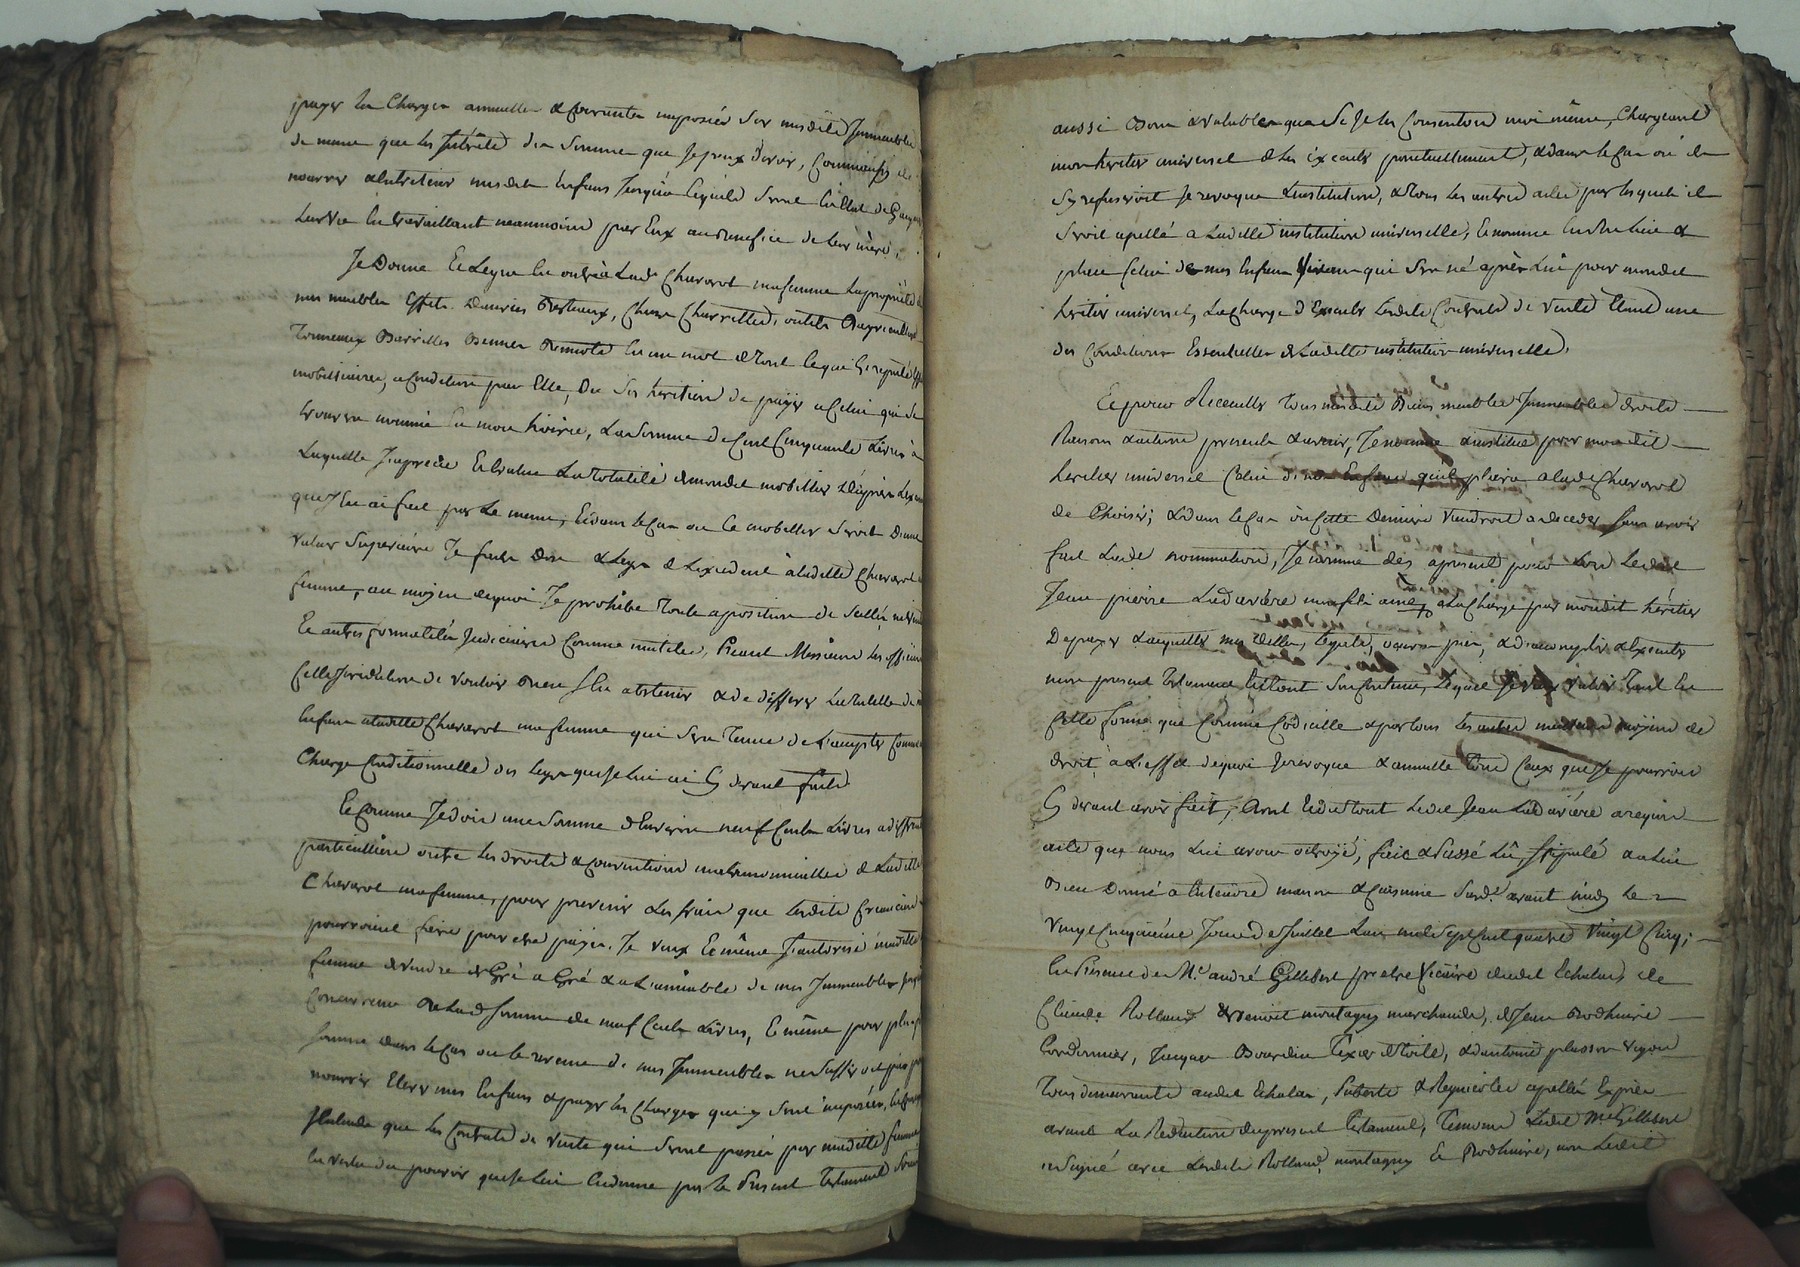 payer les charges annuelles & courantes imposées sur mesdits Immeubles
de meme que les Intérêts des sommes que Je peux devoir, Comme aussy de
nourrir & entretenir mesdits Enfans Jusqu'à ce qu'ils soient En Etat de Gagner
leur vie En travaillant neanmoins par Eux au Benefice de leur mere.
Je Donne Et Legue En outre à lade Chavarot ma femme la propriété de
mes meubles Effets Danrées Bestiaux, Chars Charrettes, outils d'agriculture
Tonneaux Barrilles Bennes En un mot & tout ce qui Est reputé Effet
mobilliaires, a Condition par Elle, Ou ses heritiers de payer a Celui qui se
trouvera nommé à mon hoirie, la somme de Cent Cinquante Livres à
laquelle J'apprecie Et Evalue la totalité de mondit mobilier d'après
que J'en ai fait par Le menu, Et dans le Cas ou Ce mobilier seroit D'une
valeur superieure Je fais don & Legs de L'excedent à ladite Chavarot
femme, au moyen de quoi Je prohibe toute aposition de scellés
Et autres formalités Judiciaires Comme inutiles, Priant Messieurs les officiers
Cette Jurisdiction de vouloir Bien s'En abstenir & de differer la tutelle de
Enfans a ladite Chavarot ma femme qui sera Tenue de L'accepter Comme
Charge Conditionnelle des legs que Je lui ai Cy devant faits
Et Comme Je dois une somme d'Environ neuf Cents Livres a differents
particulliers outre les droits & conventions matrimonialles de Ladite
Chavarot ma femme, pour prevenir Les frais que lesdits Creanciers
pourroient faire pour etre payés, Je veux Et même J'autorise madite
femme de vendre de Gré a Gré & à L'amiable de mes Immeubles Jusqu'à
Concurrence de lad somme de neuf Cents Livres, Et même pour plus
somme dans le Cas ou le revenu de mes Immeubles ne suffiroit pas pour
nourrir Elever mes Enfans & payer les Charges qui y sont imposées,
J'Entends que les Contrats de vente qui seront passés par madite femme
En vertu du pouvoir que Je lui En donne par le Present Testament soient
aussi Bons & valables que si Je les Consentois moi même, Chargeant
mon heritier universel de les Executer ponctuellement, & dans le Cas où il
s'y refuseroit Je revoque L'institution, & tous les autres actes par lesquels il
seroit apellé a Ladite institution universelle, Et nomme En son Lieu &
place Celui de mes Enfans qui sera né après Lui pour mondit
heritier universel, La Charge d'Executer Lesdits Contrats de vente Etant une
des Conditions Essentielles de Ladite institution universelle.
Et pour Recueillir tous mesdits Biens meubles Immeubles droits
Raisons & actions presents & avenir, Je nomme & institue pour mondit
heritier universel Celui de mes Enfans qu'il plaira a lade Chavarot
de Choisir; & dans le Cas où Cette Derniere viendroit a deceder sans avoir
fait Lade nomination, Je nomme dès apresent pour Lors Ledit
Jean pierre Ladavière mon fils ainé, a La Charge par mondit héritier
De payer & acquitter mes dettes, legats, & d'accomplir & Executer
mon present testament En tout son Contenu, Lequel Je veux valoir Tant En
Cette forme que Comme Codicille & par tous les autres meilleurs moyens de
droit, à L'effet de quoi Je revoque & annulle tous Ceux que Je pourrois
Cy devant avoir fait, Dont Et du tout Ledit Jean Ladavière a requis
acte que nous Lui avons octroyé, fait & Passé Lû, stipulé & a Lui
Bien Donné a Entendre maison & Cuisinne Sus de avant midy Le
Vingt Cinquieme Jour de Juillet L'an mil sept Cent quatre Vingt Cinq;
En Presence de Me andré Gillibert prêtre Vicaire dudit Echalas, de
Claude Rolland & Benoit montagny marchands, de Jean Rodhuire
Cordonnier, Jacques Bourdin Tixier & toile, & d'antoine plasson vigon
Tous demeurants audit Echalas, Suberts & Regnicoles apellés Exprès
avant La Redaction du present Testament, Temoins Ledit Me Gillibert
a signé avec Lesdits Rolland, montagny Et Rodhuire, non Ledit